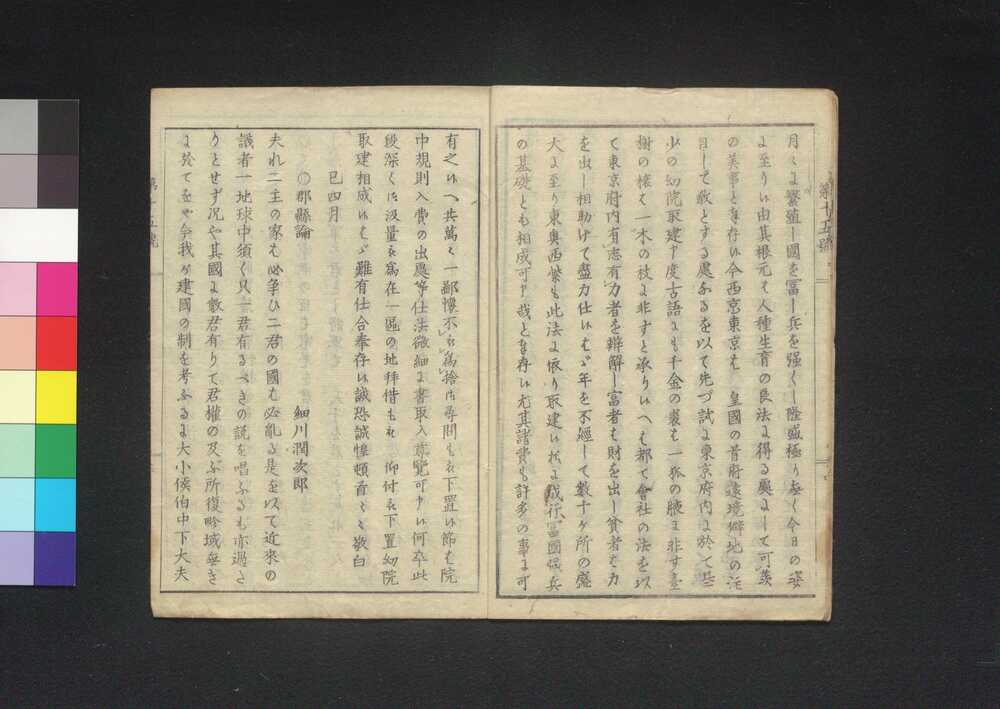 月々ま繁殖し國を冨し兵を强くし隆盛極り無く今日の姿
よ至りい由其根元も人種生育の良法よ得る與よして可羨
の美事と奉存い今西京東京も 皇國の首府遠境僻地の注
目して敬とする處ふるを以て先づ試よ東京府内よ於て些
少の幼院取建申度古語よも千金の裘も一狐の腋よ非ず臺
樹の榱も一木の枝よ非ずと承りいへも都て會社の法を以
て東京府内有志有力者を辨解し富者も財を出し貧者も力
を出し相助けて盡力仕いもゞ年を不經して數十ヶ所の盛
大よ至り東奥西紫も此法よ依り取建い樣よ成行冨國强兵
の基礎とも相成可申哉と奉存い尤其諸費も許多の事よ可
有之いへ共萬々一鄙懐不被爲捨は尋問も被下置い節も院
中規則入費の出處等仕法微細よ書取入尊覽可申い何卒此
段深くは汲量被爲在一區の地拝借も被 仰付被下置幼院
取建相成いもゞ難有仕合奉存い誠恐誠惶頓首々々敬白
巳四月
〇郡縣論 細川潤次郎
夫れ二主の家も必爭ひ二君の國も必亂る是を以て近來の
識者一地球中須く只一君有るべきの説を唱ふるも亦過き
りとせず况や其國よ數君有りて君權の及ぶ所復畛域無き
よ於てをや今我が建國の制を考ふるよ大小侯伯中下大夫
第十五號